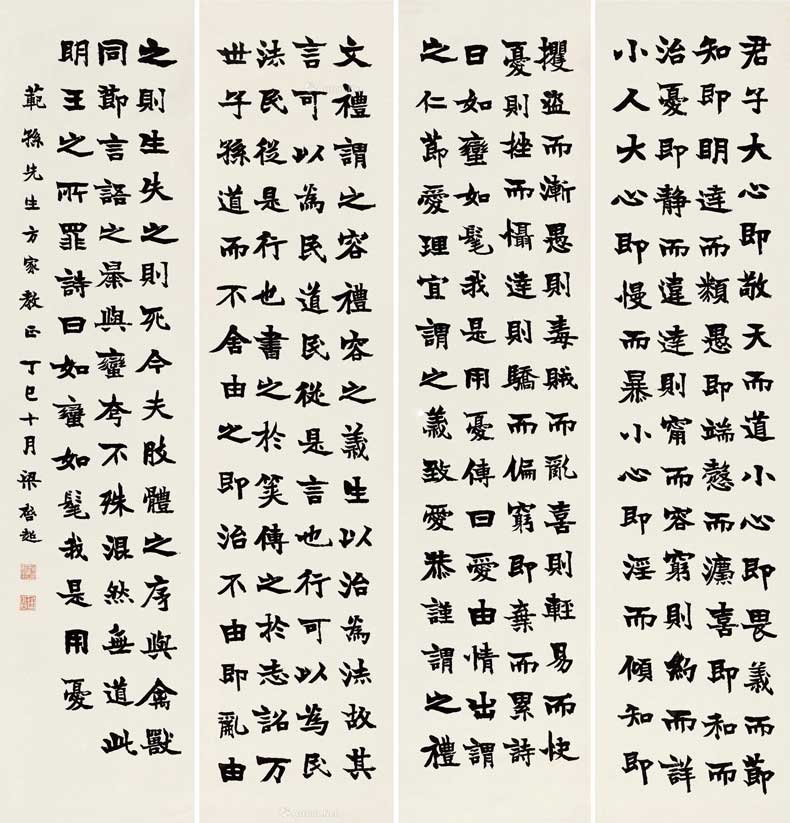 君子大心即敬天而道小心即畏義而節
知即明達而類愚即端愨而灋喜即和而
治憂即靜而違達則甯而容窮則約而詳
小人大心即慢而暴小心即淫而傾知即
攫盜而漸愚則毒賊而亂喜則輕易而快
憂則挫而懾達則驕而偏窮即棄而累詩
曰如蠻如髦我是用憂傳曰愛由情出謂
之仁節愛理宜謂之義致愛恭謹謂之禮
文禮謂之容禮容之義生以治為法故其
言可以為民道民從是言也行可以為民
法民從是行也書之於筴傳之於志詔万
世子孫道而不舍由之即治不由即亂由
之則生失之則死今夫肢體之序與禽獸
同節言語之暴與蠻夷不殊混然無道此
明王之所罪詩曰如蠻如髦我是用憂
範孫先生方家教正 丁巳十月梁啟超